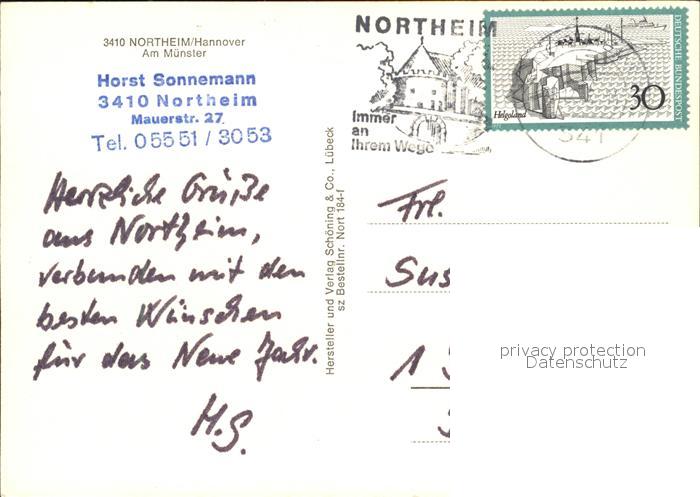 3410 NORTHEIM/Hannover
Am Münster
Horst Sonnemann
3410 Northeim
Mauerstr. 27
Tel. 05551 / 3053
Herzliche Grüße
aus Northeim,
verbunden mit den
besten Wünschen
für das Neue Jahr.
H.S.
Hersteller und Verlag Schöning & Co., Lübeck
sz Bestellnr. Nort 184-f
NORTHEIM
Immer
an
Ihrem Wege
Helgoland
30
DEUTSCHE BUNDESPOST
341
Frl.
Sus
1
privacy protection
Datenschutz